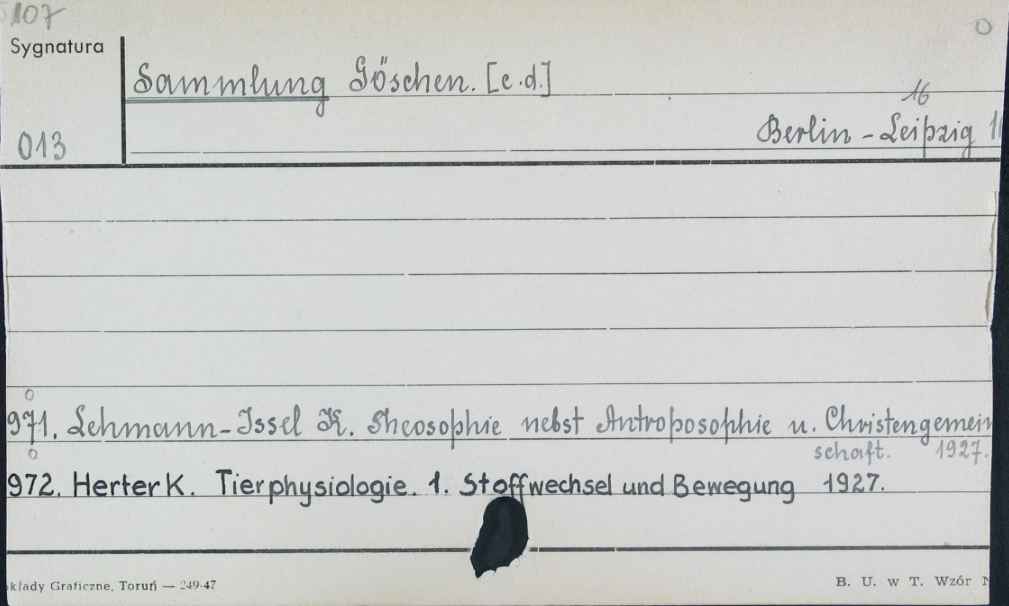 107
Sygnatura
Sammlung Göschen. [c.d.]
16
013
Berlin - Leipzig
971. Lehmann-Issel K. Theosophie nebst Antroposophie u. Christengemein
schaft. 1927.
972. Herter K. Tierphysiologie. 1. Stoffwechsel und Bewegung 1927.
kłady Graficzne, Toruń — 249-47
B. U. w T. Wzór